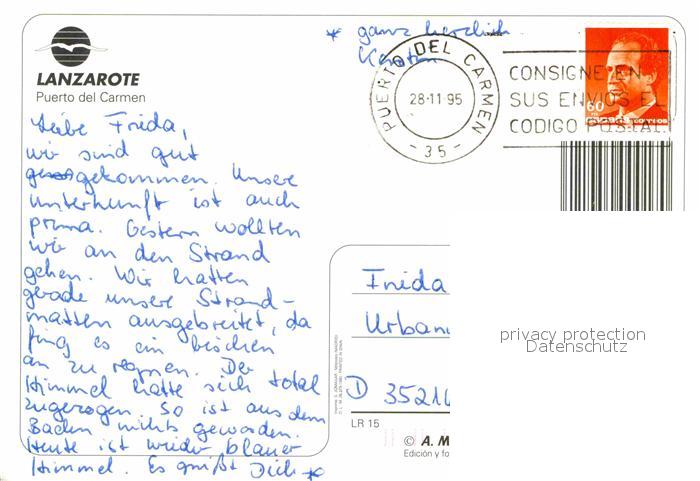 LANZAROTE
Puerto del Carmen
Liebe Frida,
wir sind gut
gekommen. Unsere
Unterkunft ist auch
prima. Gestern wollten
wir an den Strand
gehen. Wir hatten
gerade unsere Strand-
matten ausgebreitet, da
fing es ein bischen
an zu regnen. Der
Himmel hatte sich total
zugezogen. So ist aus dem
Baden nichts geworden.
Heute ist wieder blauer
Himmel. Es grüßt Dich *
* ganz herzlich
PUERTO DEL CARMEN
28-11-95
- 35 -
CONSIGNE EN
SUS ENVIOS EL
CODIGO POSTAL
60
Frida
Urban
D 35216
privacy protection
Datenschutz
LR 15
© A. M
Edición y fo